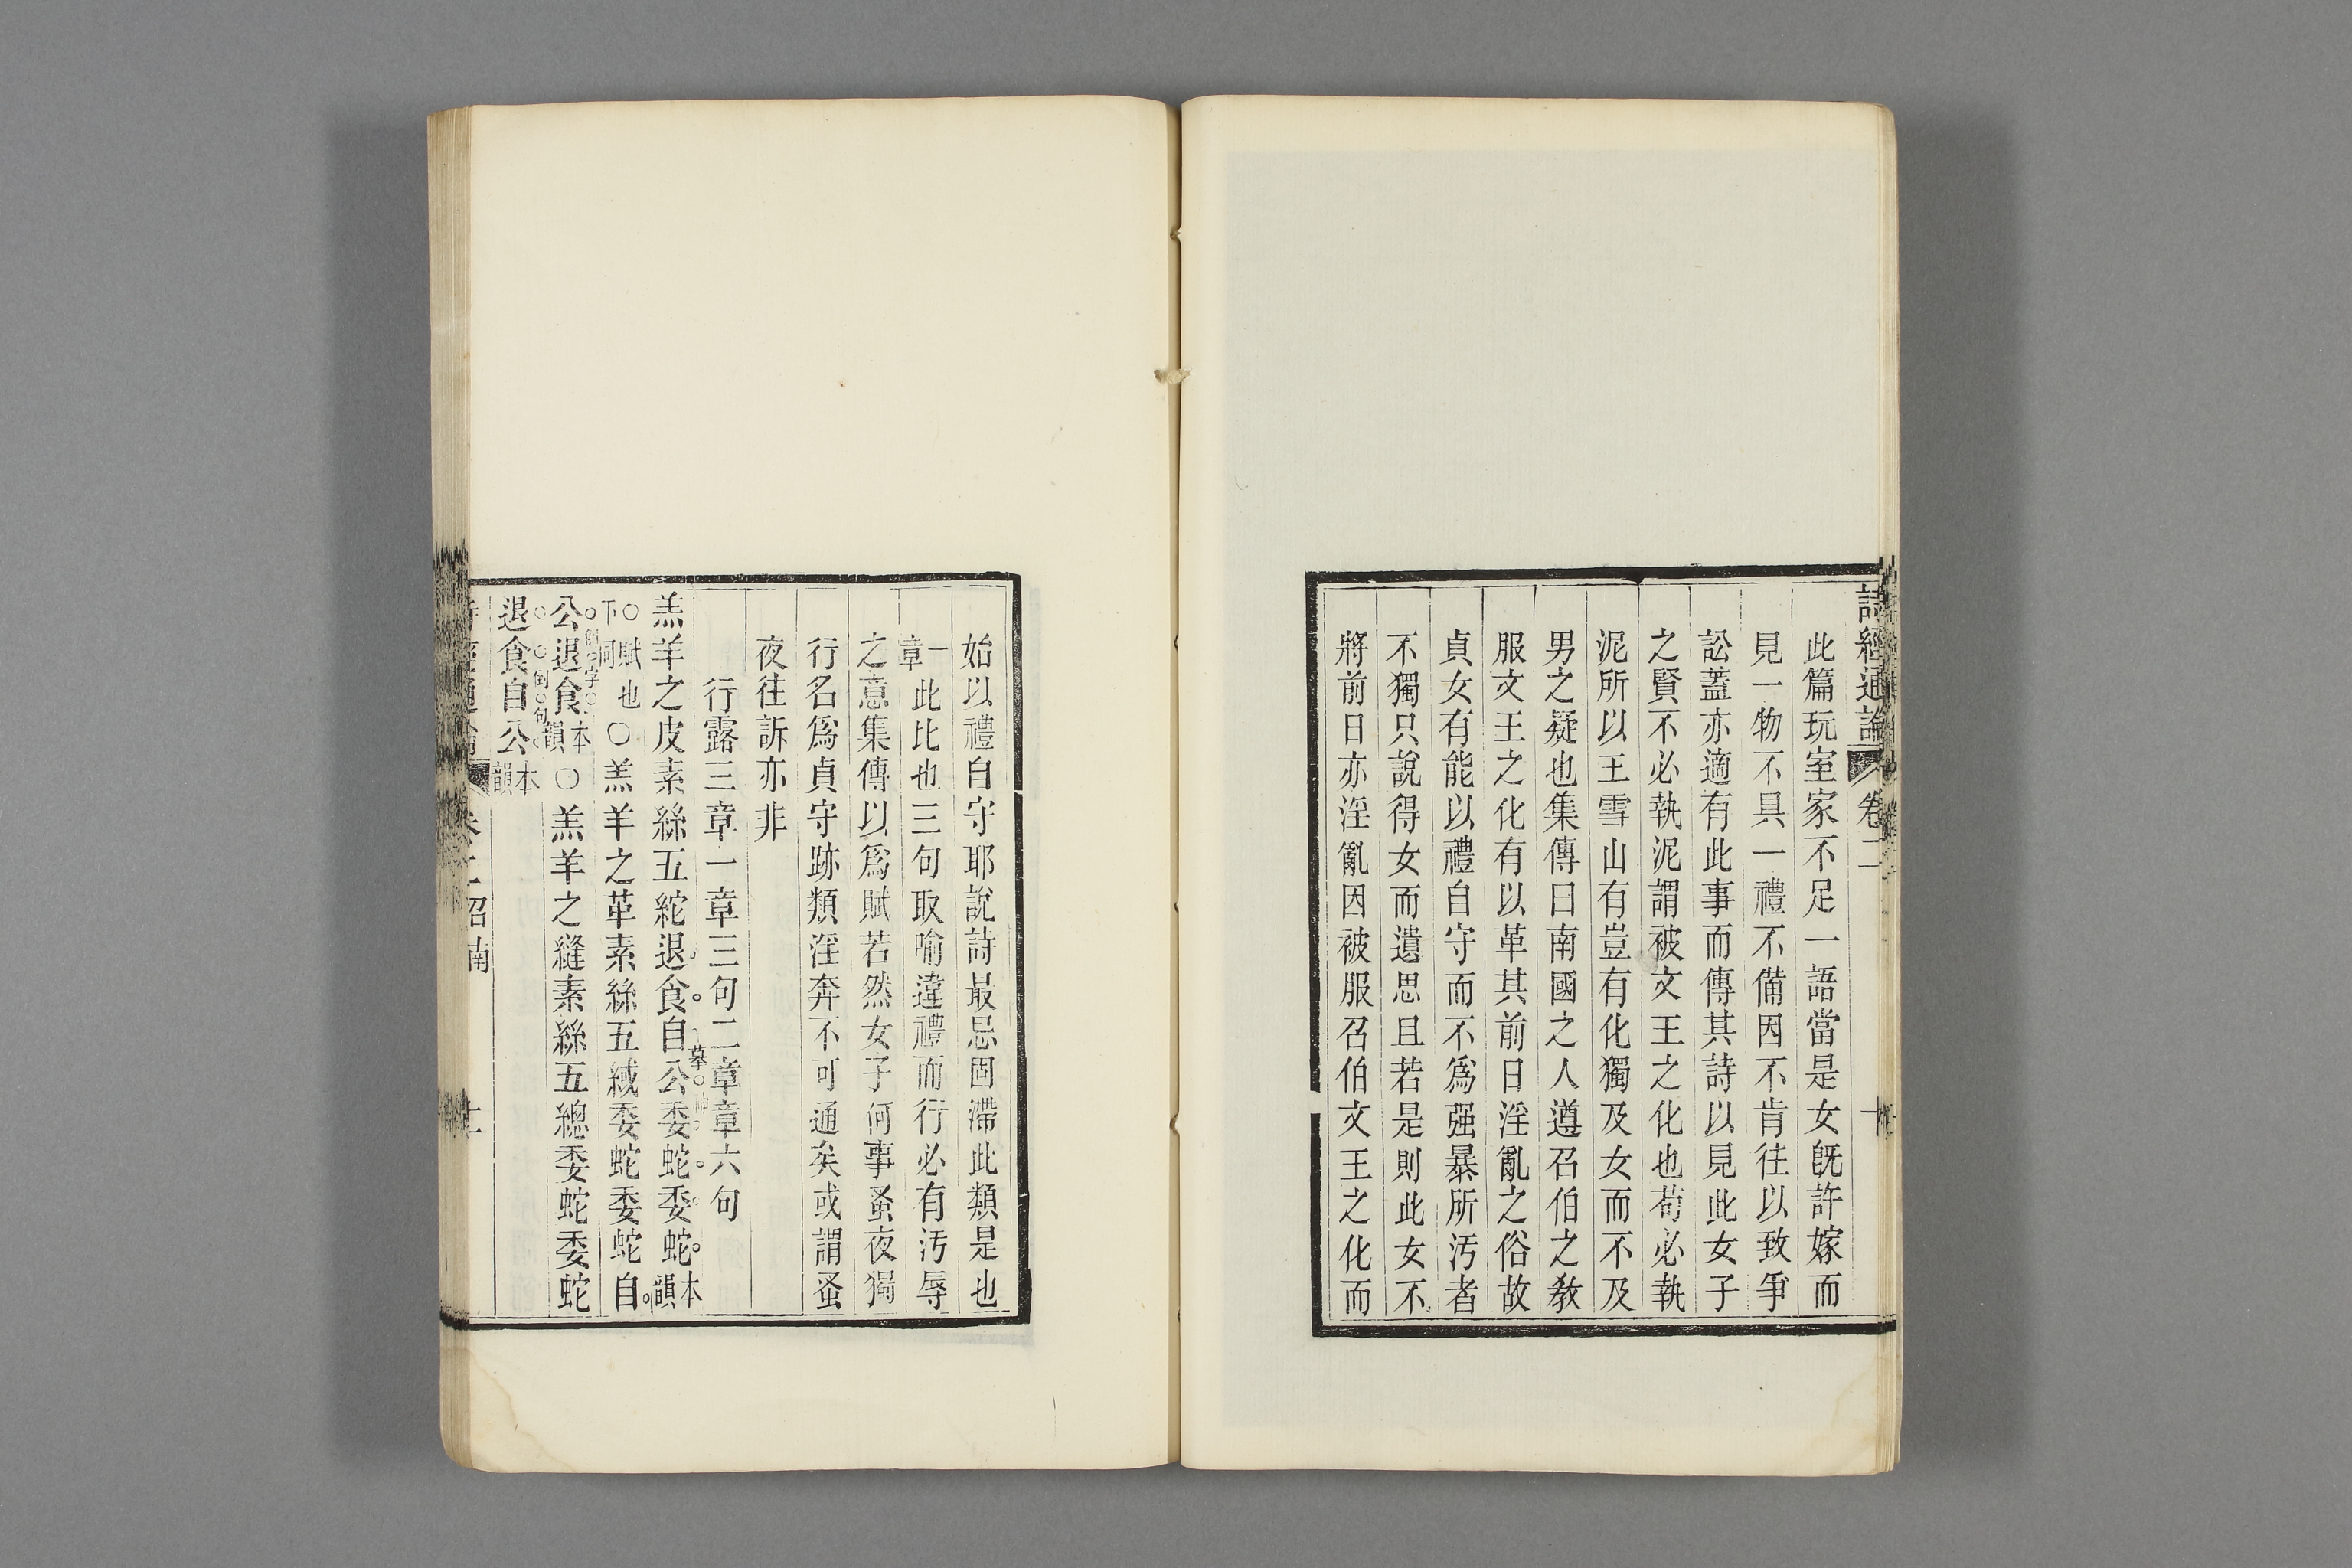 詩經通論 卷二 十
此篇玩室家不足一語當是女旣許嫁而
見一物不具一禮不備因不肯往以致爭
訟蓋亦適有此事而傳其詩以見此女子
之賢不必執泥謂被文王之化也茍必執
泥所以王雪山有豈有化獨及女而不及
男之疑也集傳曰南國之人遵召伯之敎
服文王之化有以革其前日淫亂之俗故
貞女有能以禮自守而不爲强暴所污者
不獨只說得女而遺思且若是則此女不
將前日亦淫亂因被服召伯文王之化而
始以禮自守耶說詩最忌固滯此類是也
一章此比也三句取喻違禮而行必有污辱
之意集傳以爲賦若然女子何事蚤夜獨
行名爲貞守跡類淫奔不可通矣或謂蚤
夜往訴亦非
行露三章一章三句二章章六句
羔羊之皮素絲五紽退食自公委蛇委蛇本韻
○賦也下同○羔羊之革素絲五緎委蛇委蛇自
公退食本韻○羔羊之縫素絲五總委蛇委蛇
退食自公本韻
卷二 召南